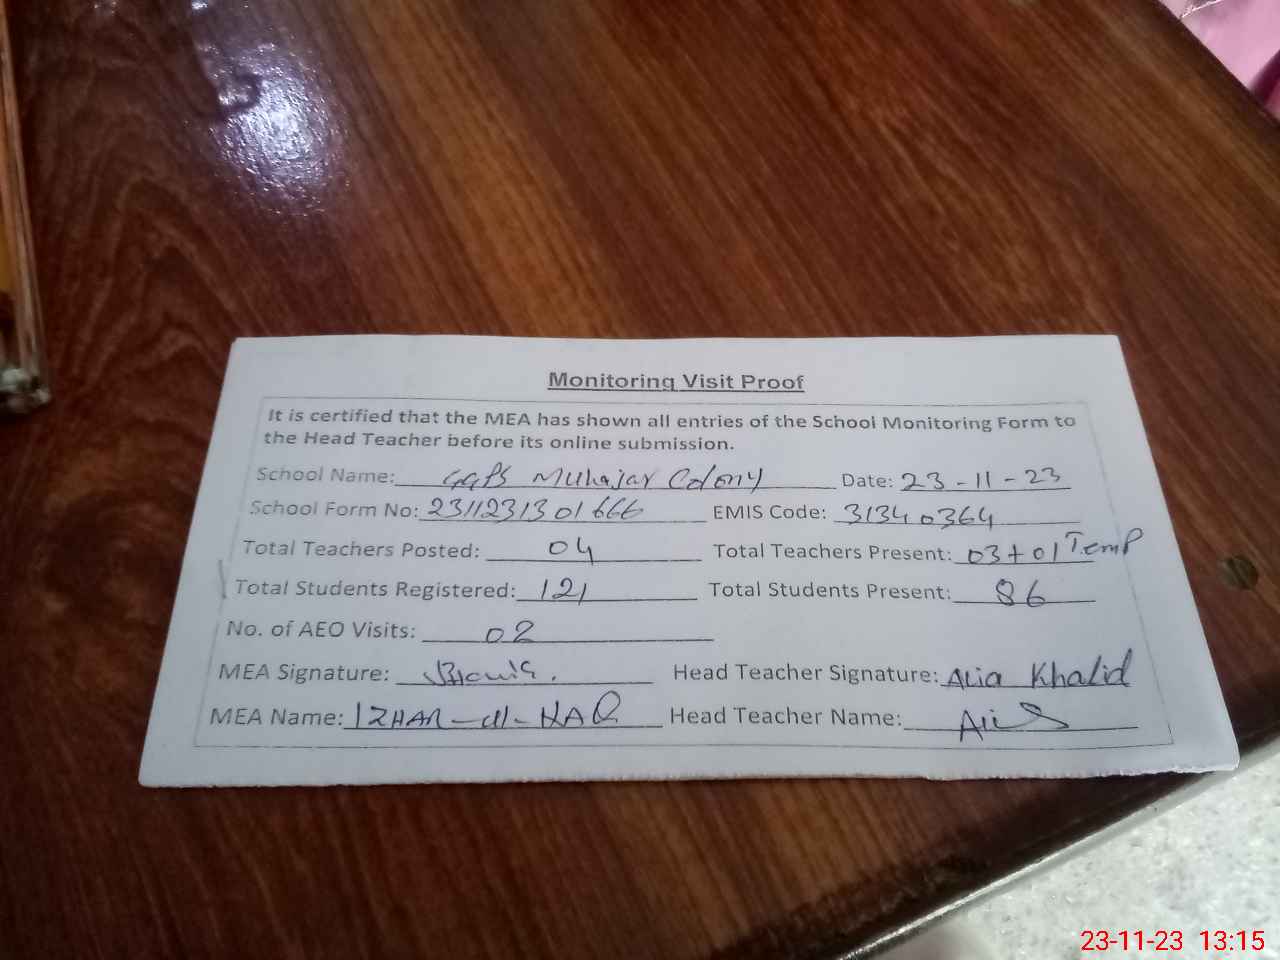 Monitoring Visit Proof
It is certified that the MEA has shown all entries of the School Monitoring Form to
the Head Teacher before its online submission.
School Name: GGPS Muhajar Colony Date: 23-11-23
School Form No: 2311231301666 EMIS Code: 31340364
Total Teachers Posted: 04 Total Teachers Present: 03+01 Temp
Total Students Registered: 121 Total Students Present: 86
No. of AEO Visits: 02
MEA Signature: Head Teacher Signature: Alia Khalid
MEA Name: IZHAR-ul-HAQ Head Teacher Name:
23-11-23 13:15